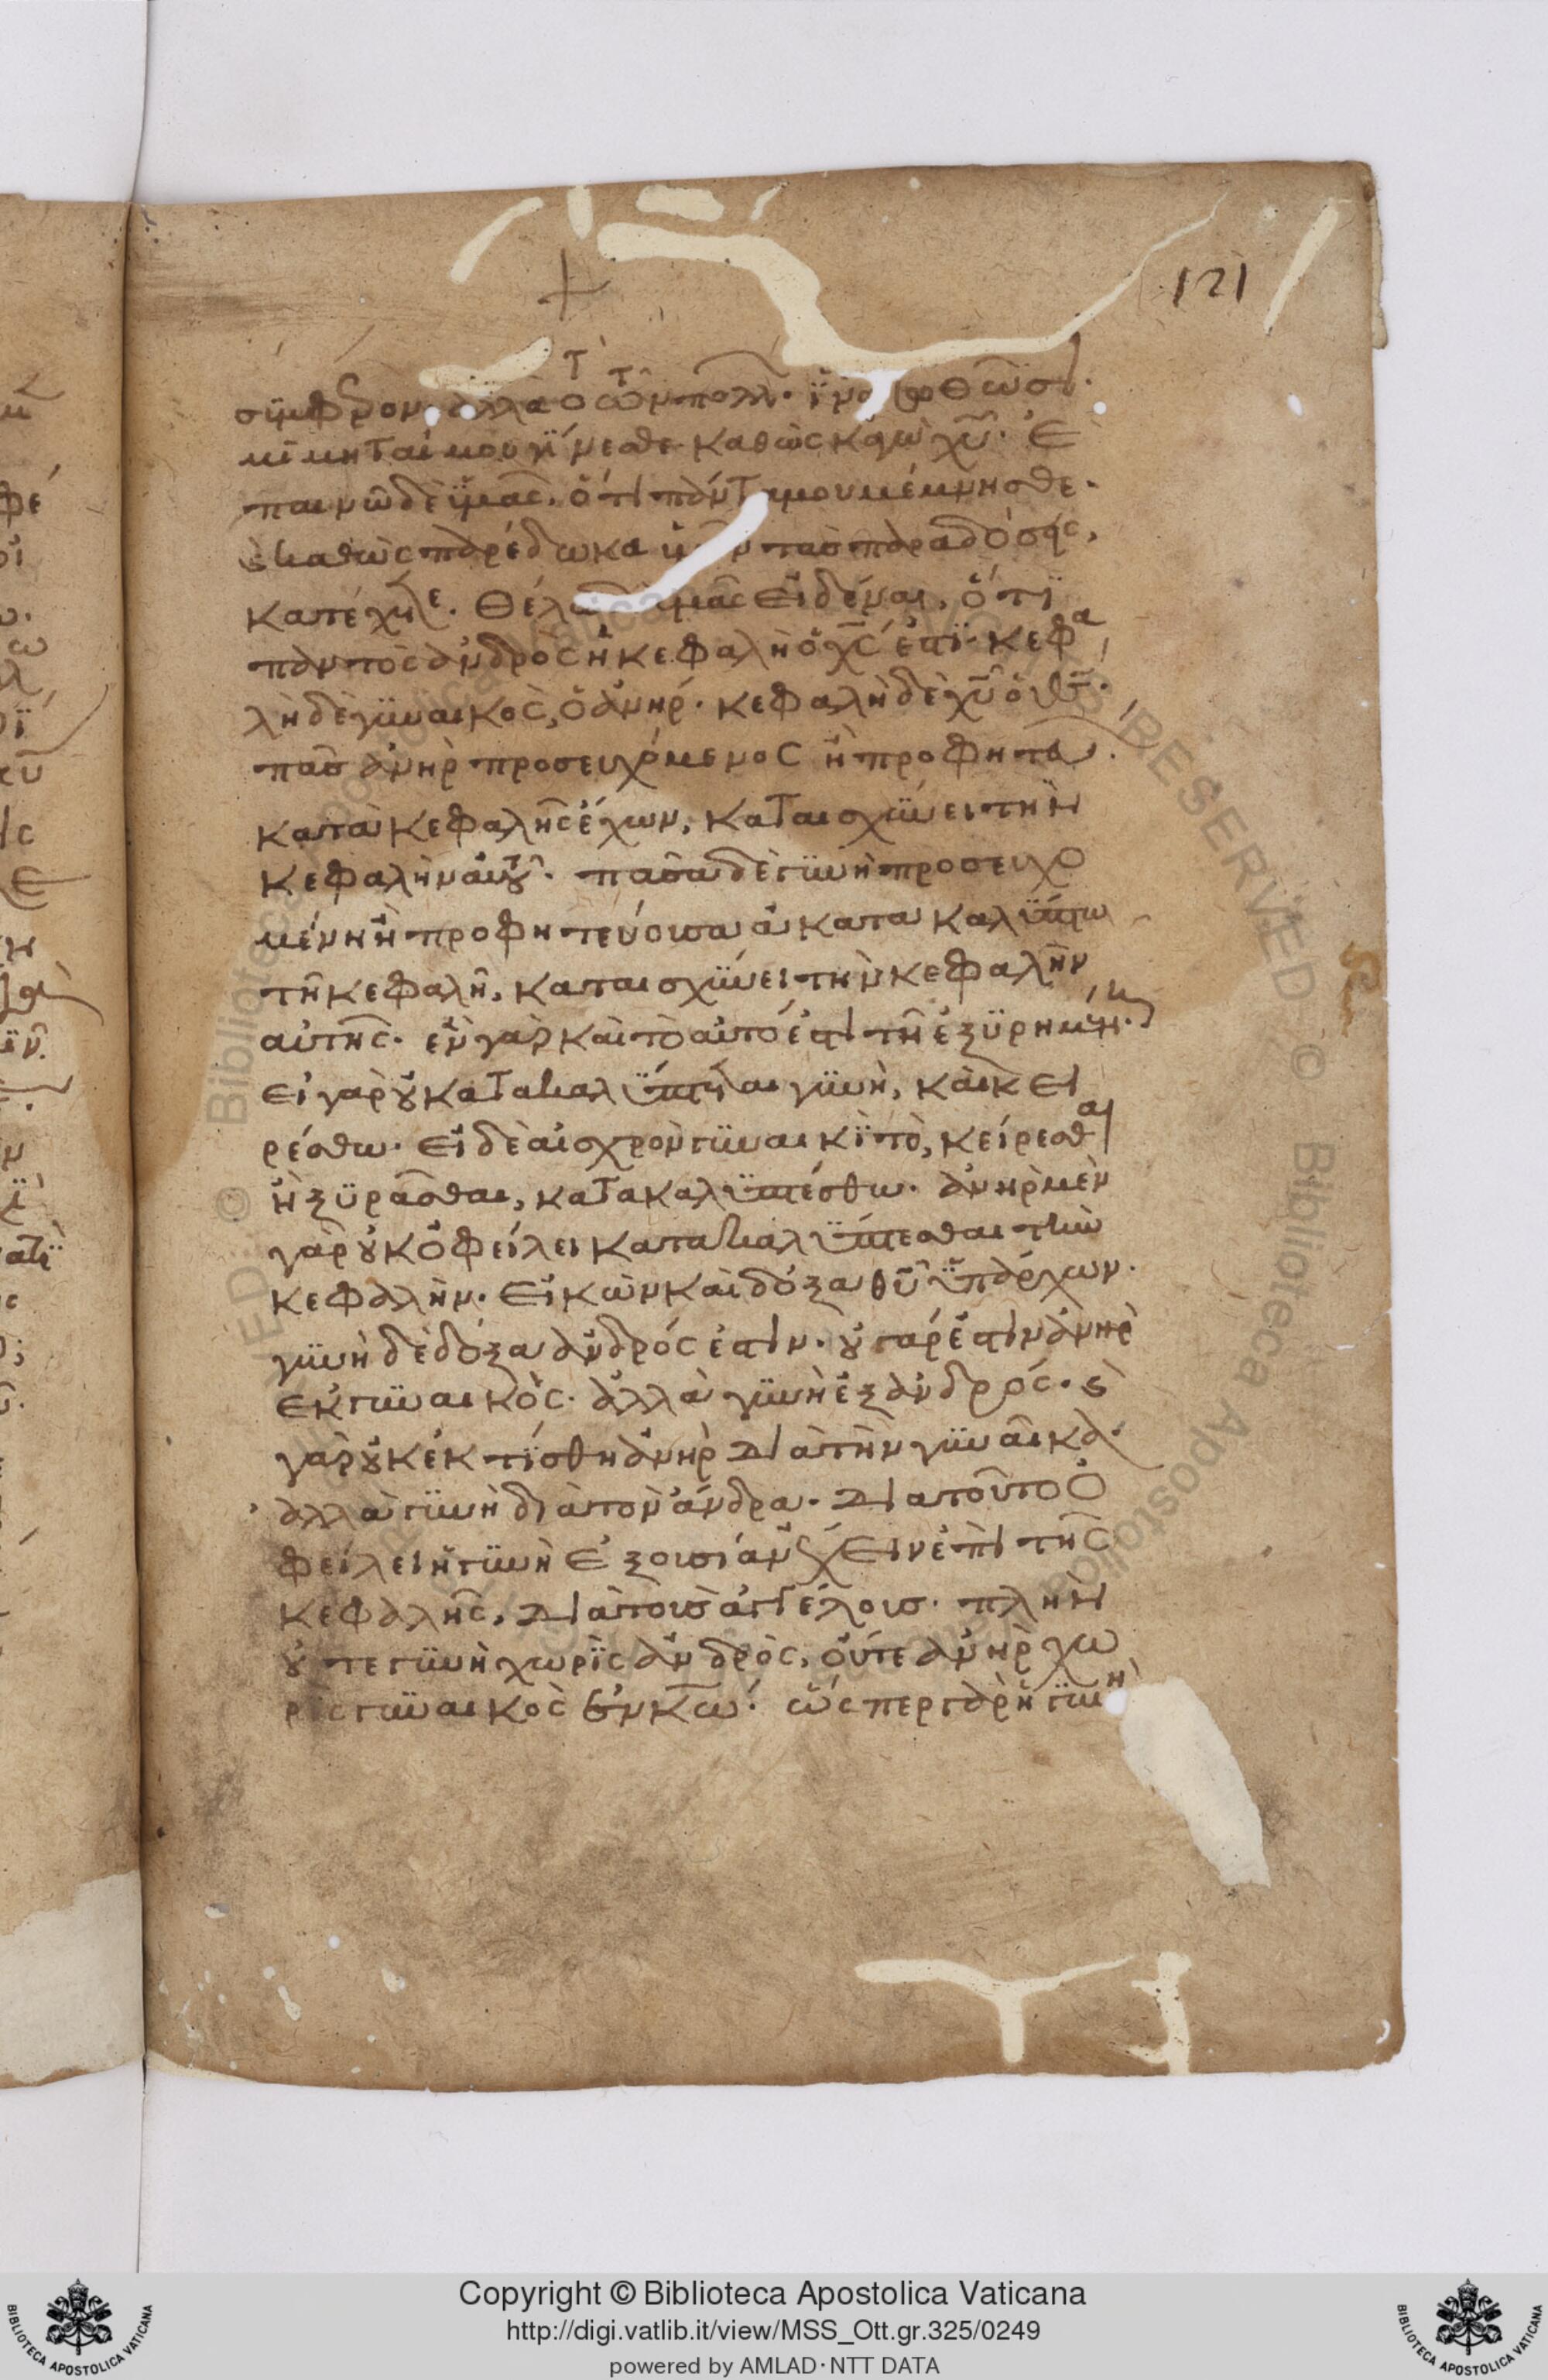 121
σϋμφέρον ἀλλὰ τὸ τῶν πολλ. ϊνα σωθῶσι.
μιμηταί μου γίνεσθε καθὼς κἀγὼ χυ. Ἐ
παινῶ δὲ ϋμᾶς. ὅτι πάντα μου μέμνησθε.
ϗ καθὼς παρέδωκα ϋμῖν τὰσ παραδόσεις,
κατέχετε. Θέλω δὲ ϋμᾶς εἰδέναι, ὅτι
παντὸς ἀνδρὸς ἡ κεφαλὴ ὁ χς ἐστι. κεφα
λὴ δὲ γϋναικὸς, ὁ ἀνήρ. κεφαλὴ δὲ χυ ὁ θς.
πᾶσ ἀνὴρ προσευχόμενος ἢ προφητεύων.
κατὰ κεφαλῆς ἔχων, καταισχϋνει τὴν
κεφαλὴν αὑτȣ. πᾶσα δὲ γϋνὴ προσευχο
μένη ἢ προφητεύουσα ἀκατακαλϋπτω
τῇ κεφαλῇ, καταισχϋνει τὴν κεφαλὴν
αὑτῆς. ἓν γάρ καὶ τὸ αὐτό ἐστι τῇ ἐξϋρημένη.
εἰ γὰρ ȣ κατακαλϋπτεται γϋνὴ, καὶ κει
ρέσθω. εἰ δὲ αἰσχρὸν γϋναικὶ τὸ, κείρεσθαι
ἢ ξϋρᾶσθαι, κατακαλϋπτέσθω. ἀνὴρ μὲν
γὰρ ȣκ ὀφείλει κατακαλϋπτεσθαι τὴν
κεφαλὴν. εἰκὼν καὶ δόξα θυ ϋπάρχων.
γϋνὴ δὲ δόξα ἀνδρός ἐστιν. ȣ γάρ ἐστιν ἀνὴρ
ἐκ γϋναικὸς. ἀλλὰ γϋνὴ ἐξ ἀνδρός. ϗ
γὰρ ȣκ ἐκτίσθη ἀνὴρ διὰ τὴν γϋναῖκα.
ἀλλὰ γϋνὴ διὰ τὸν ἄνδρα. διὰ τοῦτο ὀ
φείλει ἡ γϋνὴ ἐξουσίαν ἔχειν ἐπὶ τῆς
κεφαλῆς, διὰ τοὺσ ἀγγέλουσ. πλὴν
ȣτε γϋνὴ χωρὶς ἀνδρὸς, οὔτε ἀνὴρ χω
ρὶς γϋναικὸς ἐν κω. ὥσπερ γὰρ ἡ γϋνὴ
Copyright © Biblioteca Apostolica Vaticana
http://digi.vatlib.it/view/MSS_Ott.gr.325/0249
powered by AMLAD·NTT DATA